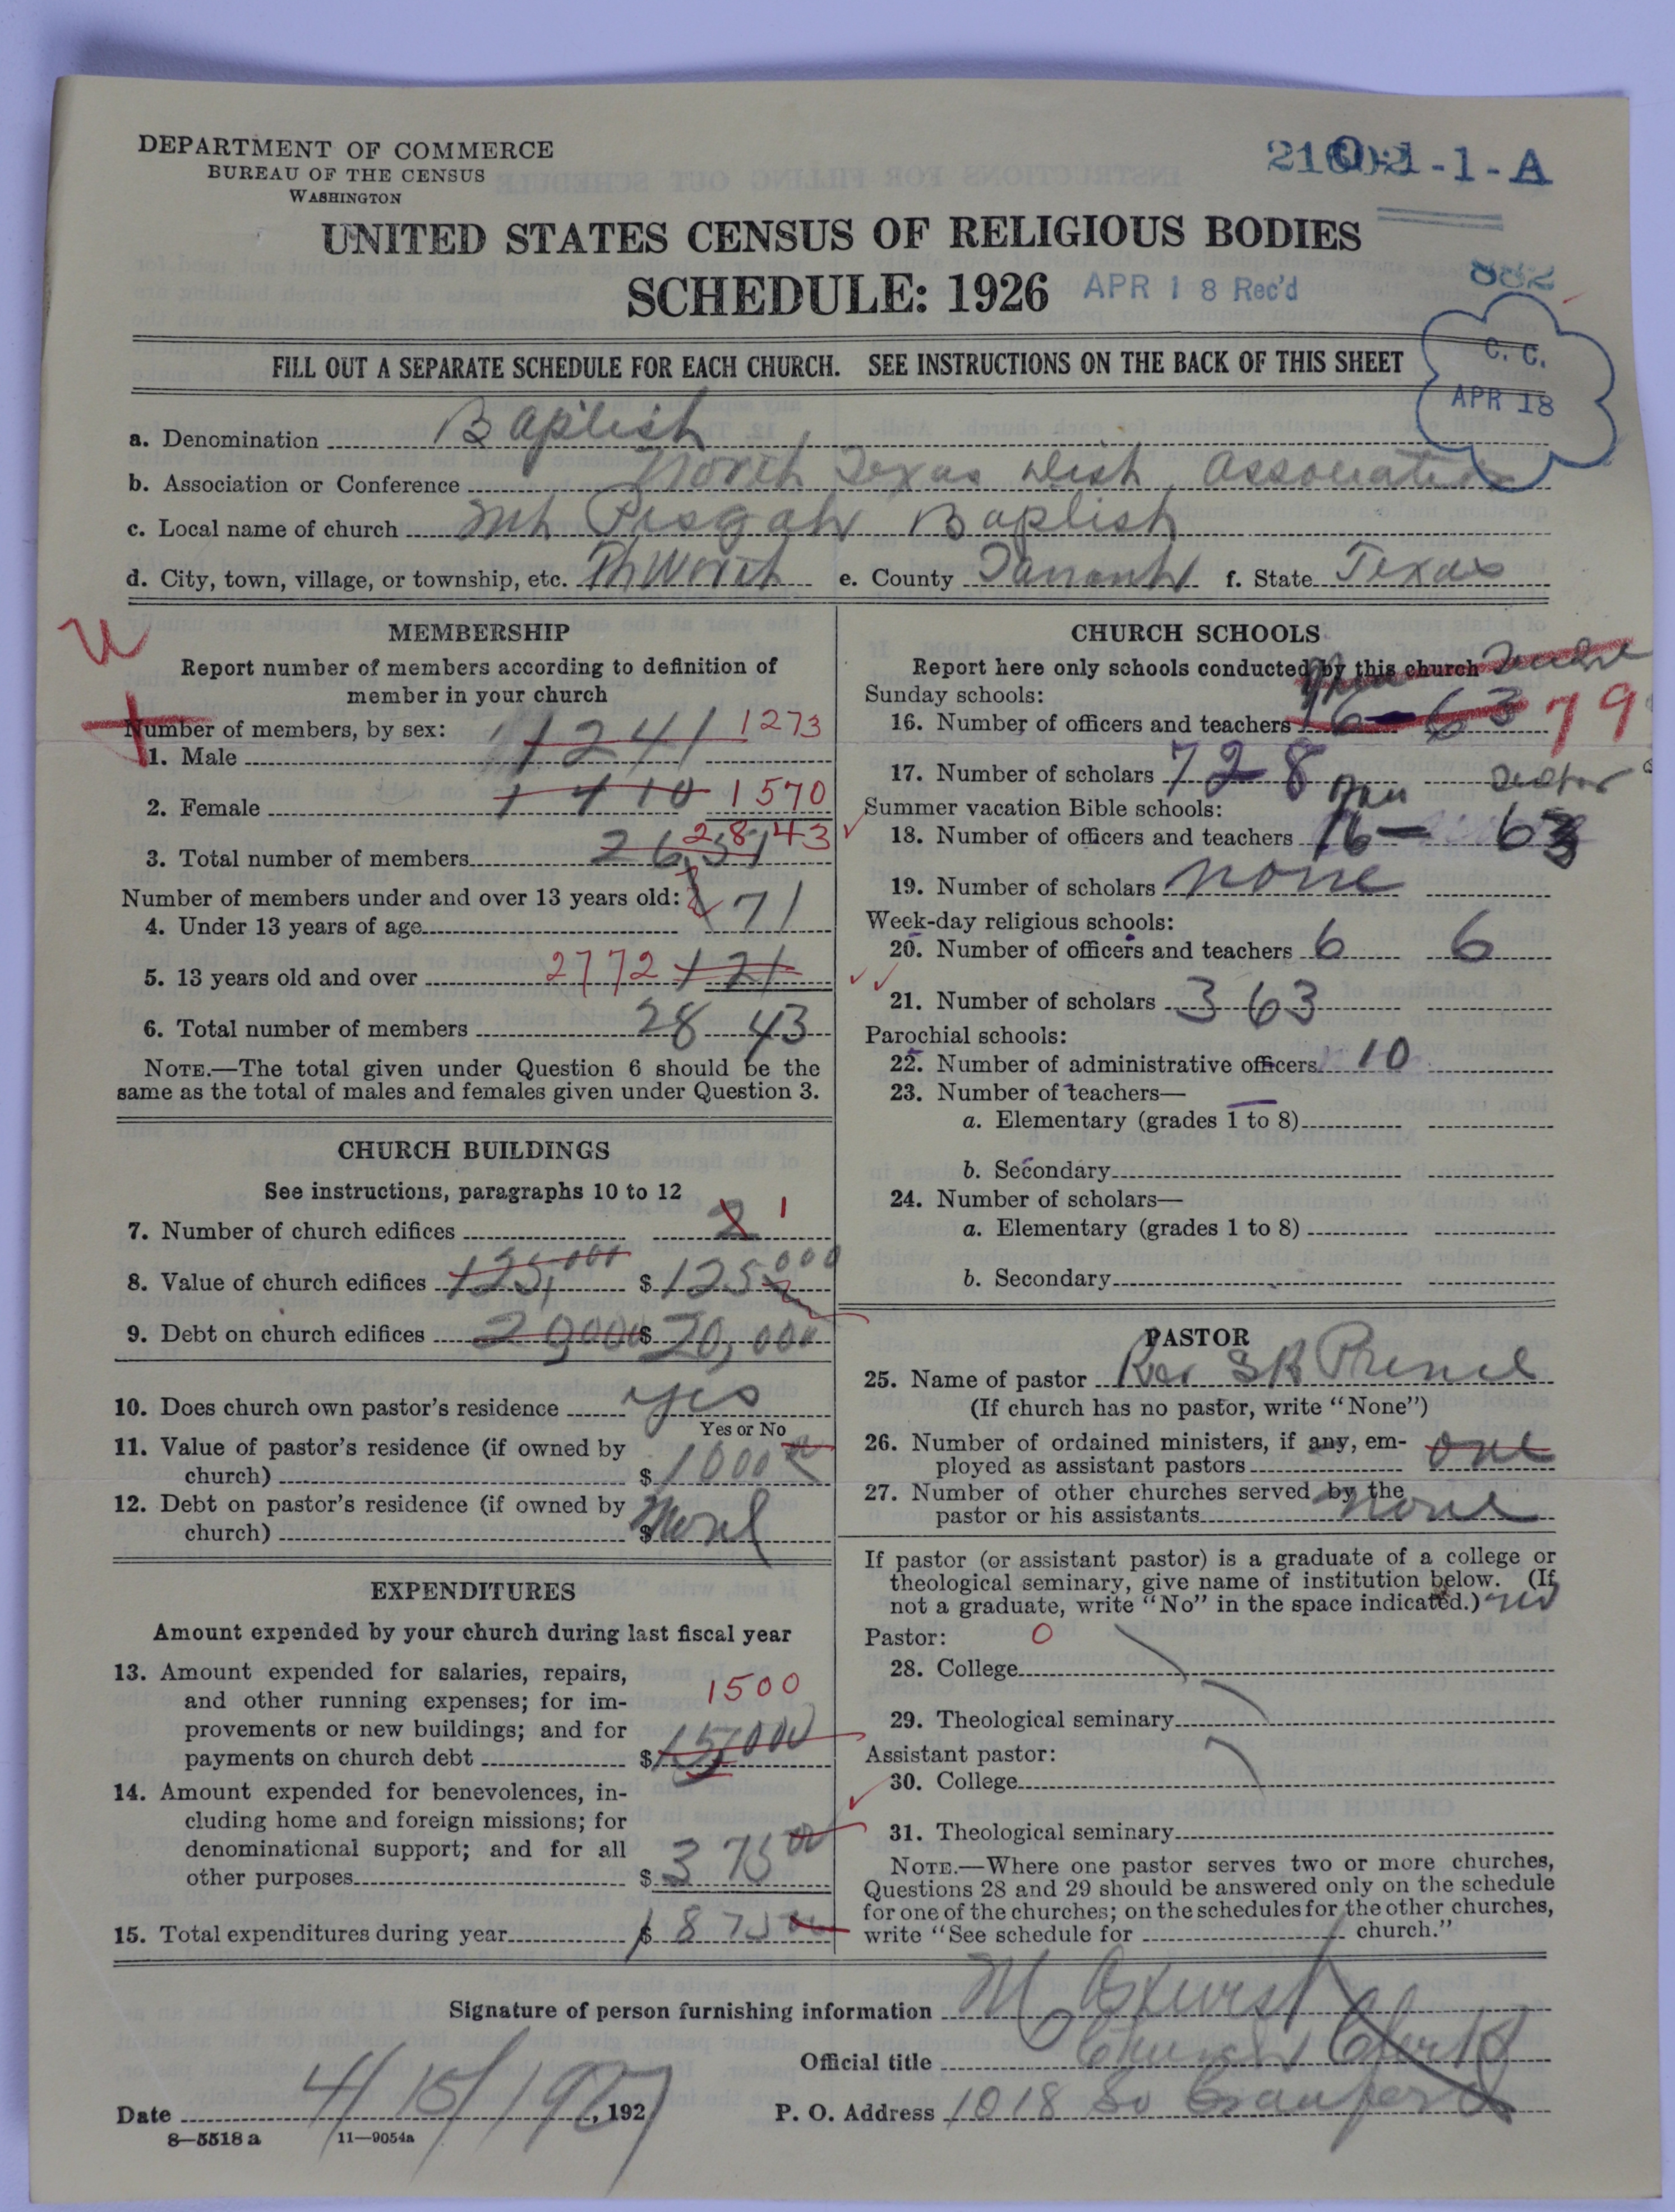 DEPARTMENT OF COMMERCE
BUREAU OF THE CENSUS
WASHINGTON
-1-A
UNITED STATES CENSUS OF RELIGIOUS BODIES
SCHEDULE: 1926 APR 18 Rec'd
882
FILL OUT A SEPARATE SCHEDULE FOR EACH CHURCH. SEE INSTRUCTIONS ON THE BACK OF THIS SHEET
C. C.
APR 18
a. Denomination Baptist
b. Association or Conference North Texas Dist Association
c. Local name of church Mt Pisgah Baptist
d. City, town, village, or township, etc. Ft Worth e. County Tarrant f. State Texas
MEMBERSHIP
Report number of members according to definition of
member in your church
Number of members, by sex:
1. Male 1241 1273
2. Female 1410 1570
3. Total number of members 2651 2843
Number of members under and over 13 years old:
4. Under 13 years of age 71
5. 13 years old and over 2772 121
6. Total number of members 28 43
NOTE.—The total given under Question 6 should be the
same as the total of males and females given under Question 3.
CHURCH BUILDINGS
See instructions, paragraphs 10 to 12
7. Number of church edifices 2 1
8. Value of church edifices 125,000 $ 125000
9. Debt on church edifices 20000 $ 20,000
10. Does church own pastor's residence yes
Yes or No
11. Value of pastor's residence (if owned by
church) $ 1000 00
12. Debt on pastor's residence (if owned by
church) $ None
EXPENDITURES
Amount expended by your church during last fiscal year
13. Amount expended for salaries, repairs,
and other running expenses; for im-
provements or new buildings; and for
payments on church debt $ 1500
14. Amount expended for benevolences, in-
cluding home and foreign missions; for
denominational support; and for all
other purposes $ 375 00
15. Total expenditures during year $ 1875 00
CHURCH SCHOOLS
Report here only schools conducted by this church
Sunday schools:
16. Number of officers and teachers 16 - 63 79
17. Number of scholars 728
Summer vacation Bible schools:
18. Number of officers and teachers 16 - 63
19. Number of scholars none
Week-day religious schools:
20. Number of officers and teachers 6 6
21. Number of scholars 363
Parochial schools:
22. Number of administrative officers 10
23. Number of teachers—
a. Elementary (grades 1 to 8)
b. Secondary
24. Number of scholars—
a. Elementary (grades 1 to 8)
b. Secondary
PASTOR
25. Name of pastor Rev S R Prince
(If church has no pastor, write "None")
26. Number of ordained ministers, if any, em-
ployed as assistant pastors one
27. Number of other churches served by the
pastor or his assistants none
If pastor (or assistant pastor) is a graduate of a college or
theological seminary, give name of institution below. (If
not a graduate, write "No" in the space indicated.) no
Pastor: 0
28. College
29. Theological seminary
Assistant pastor:
30. College
31. Theological seminary
NOTE.—Where one pastor serves two or more churches,
Questions 28 and 29 should be answered only on the schedule
for one of the churches; on the schedules for the other churches,
write "See schedule for church."
Signature of person furnishing information M
Official title Church Clerk
Date 4/15/1927, 192 P. O. Address 1018 So
8—5518 a 11—9054a